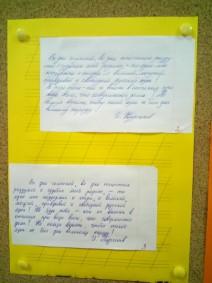 Во дни сомнений, во дни тягостных разду-
мий о судьбах моей родины, - ты один мне
поддержка и опора, о великий, могучий,
правдивый и свободный русский язык!
Не будь тебя - как не впасть в отчаяние при
виде всего, что совершается дома? Но
нельзя верить, чтобы такой язык не был дан
великому народу!
И. Тургенев
2
Во дни сомнений, во дни тягостных
раздумий о судьбах моей родины, - ты
один мне поддержка и опора, о великий,
могучий, правдивый и свободный русский
язык! Не будь тебя - как не впасть в
отчаяние при виде всего, что совершается
дома? Но нельзя верить, чтобы такой
язык не был дан великому народу!
И. Тургенев
3